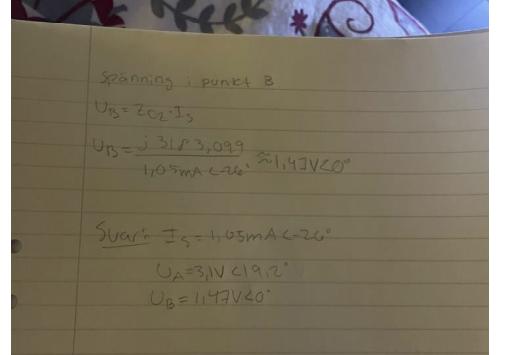 Spänning i punkt B
U_B = Z_C2 · I_3
U_B = j 3183,099
1,05mA <-26° ≈ 1,47V<0°
Svar: I_S = 1,05mA <-26°
U_A = 3,1V <19,2°
U_B = 1,47V<0°